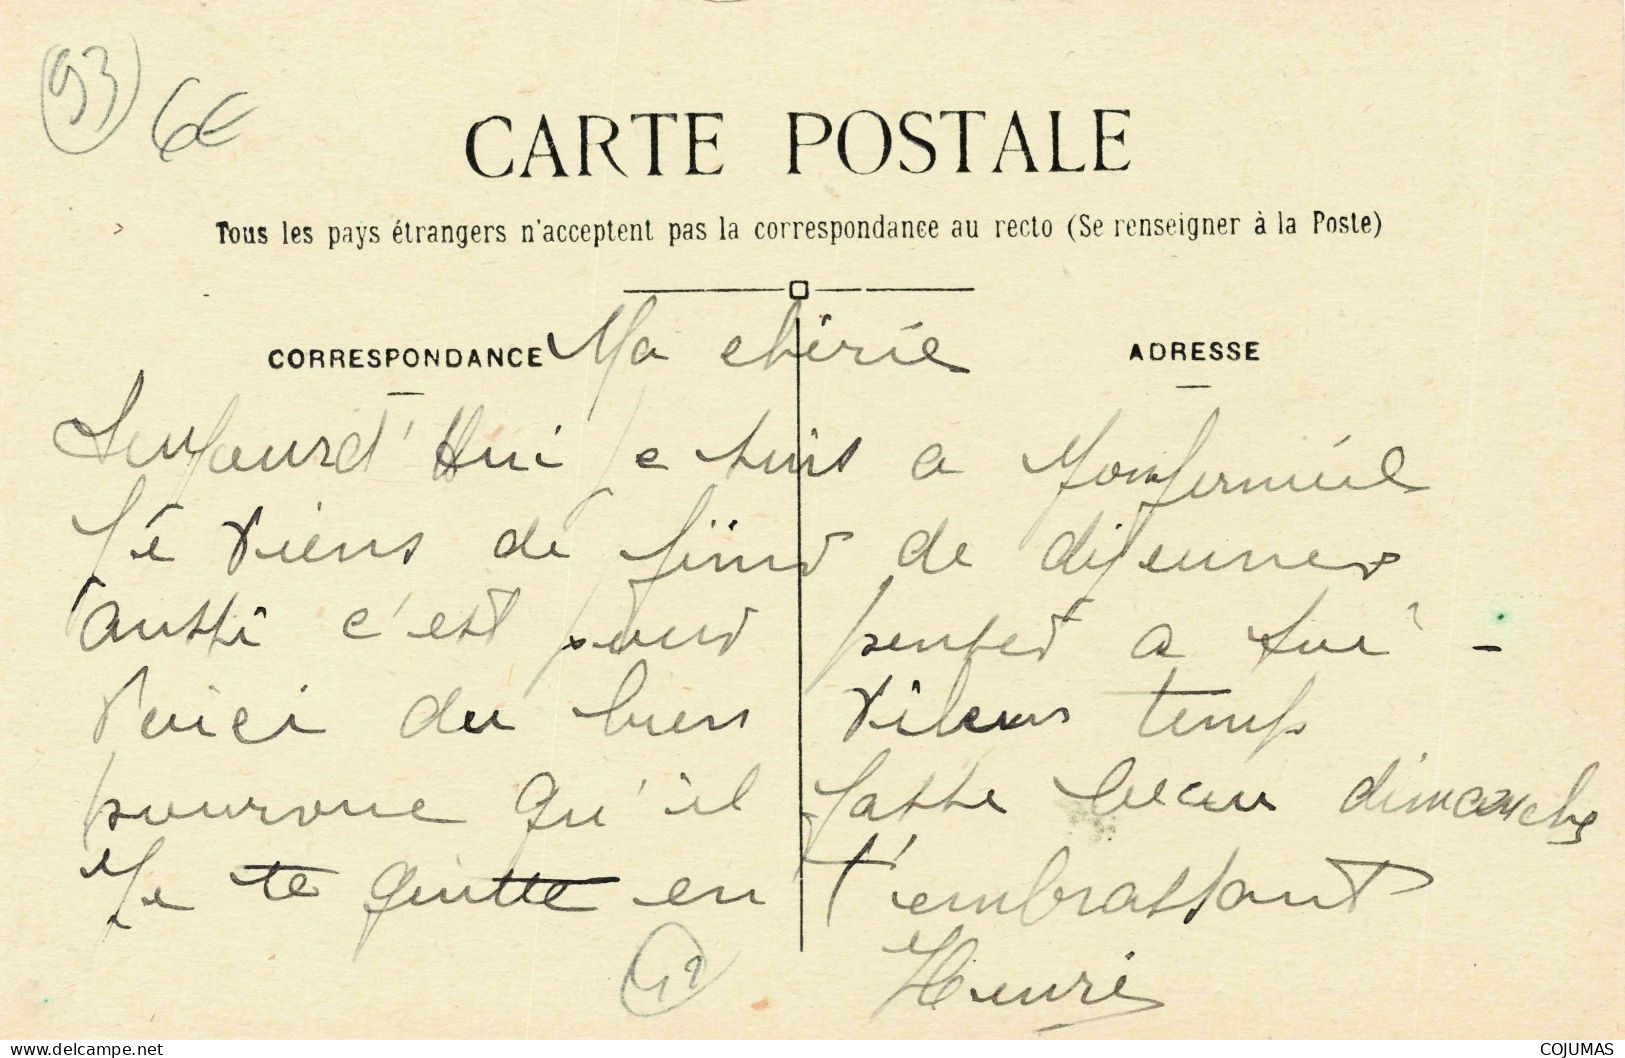 93
6€
CARTE POSTALE
Tous les pays étrangers n'acceptent pas la correspondance au recto (Se renseigner à la Poste)
CORRESPONDANCE
ADRESSE
Ma chérie
Aujourd'Hui je suis a Monfermeil
Je viens de finir de dijeuner
aussi c'est pour penser a toi -
Voici du bien vilens temp
pourvue qu'il fasse beau dimanche
Je te quitte en t'embrassant
Henri
delcampe.net
COJUMAS